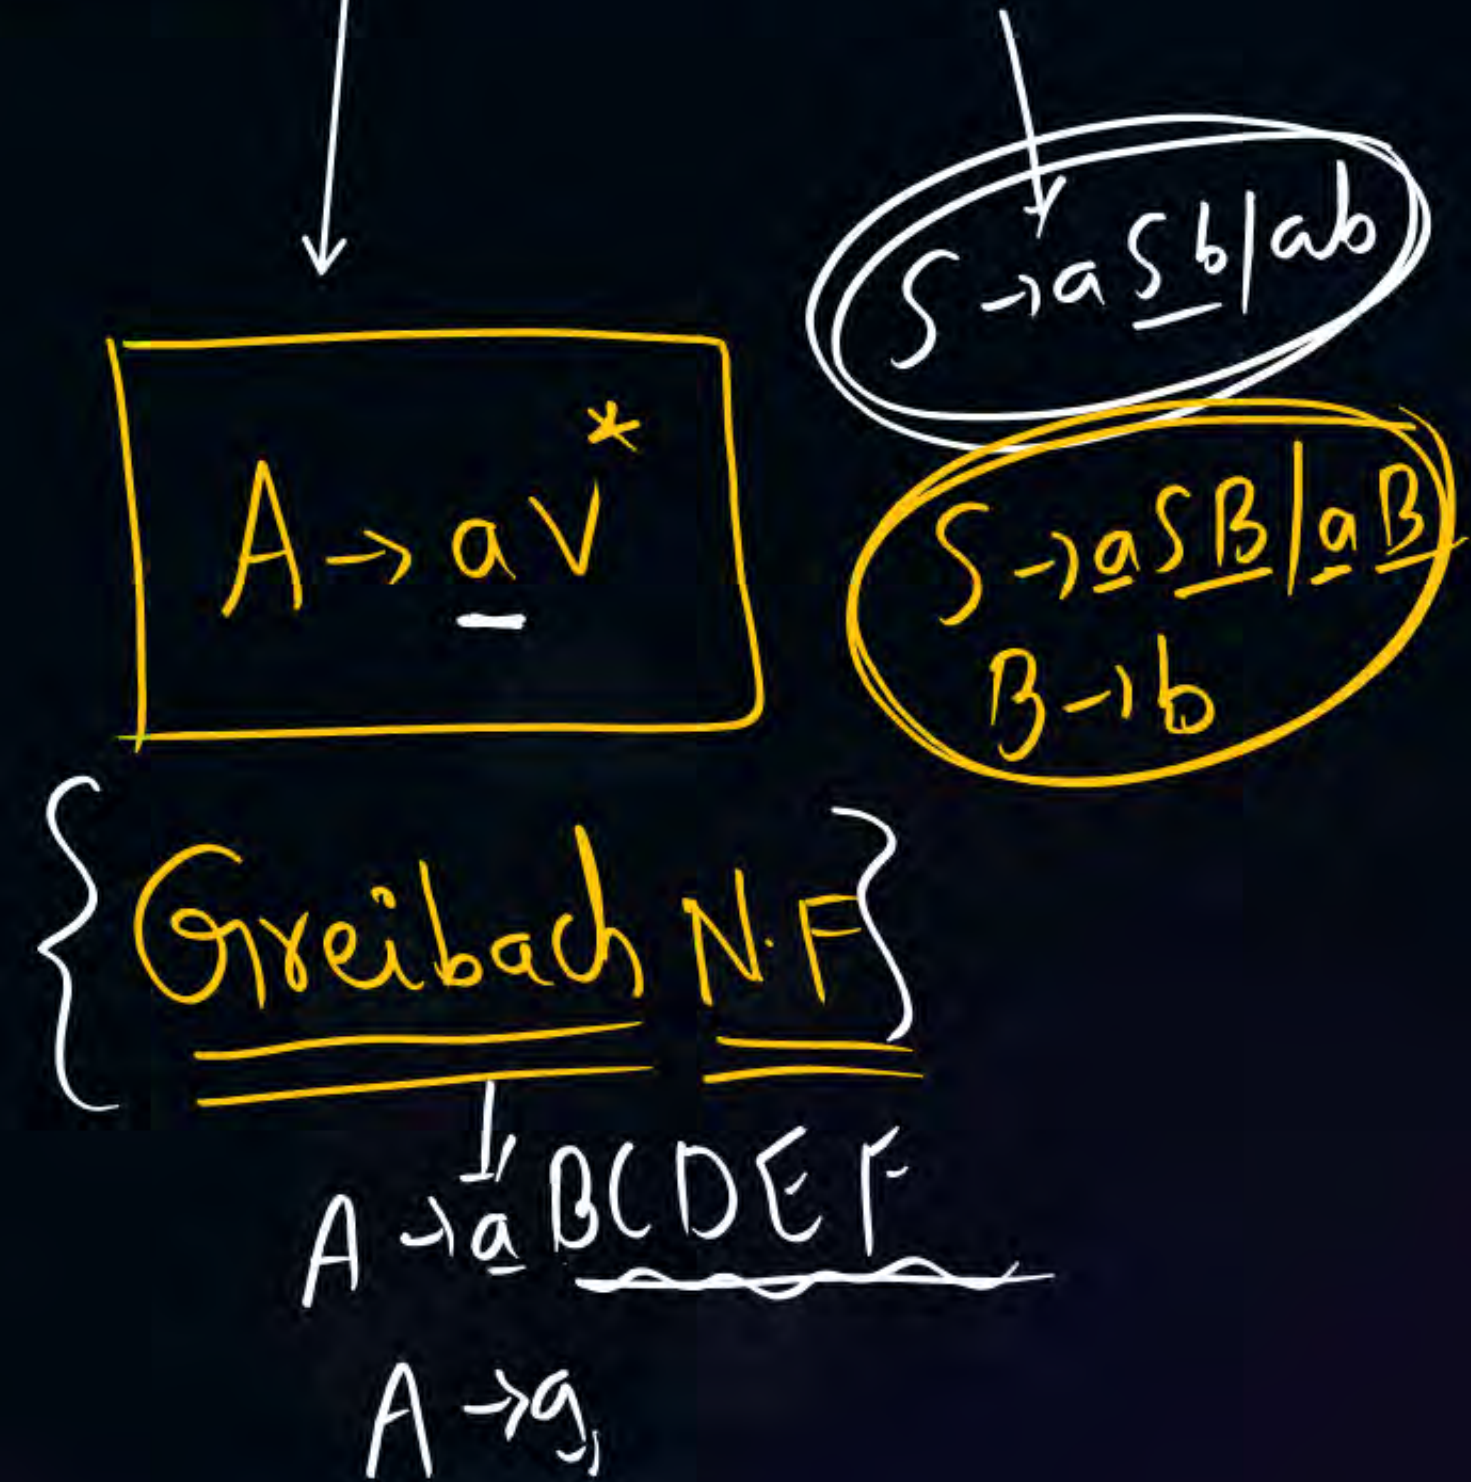 S → aSb | ab
A → aV*
S → aSB | aB
B → b
Greibach N.F
A → aBCDEF
A → a,